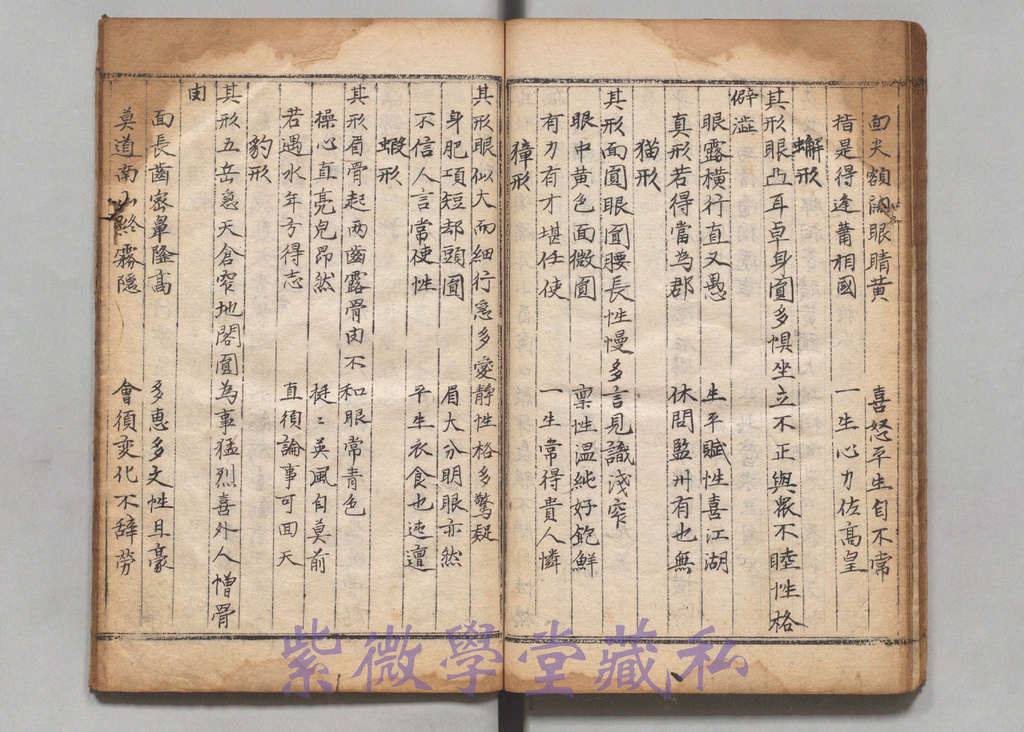 面尖額闊眼睛黄　喜怒平生自不常
指是得逢蕭相國　一生心力佐高皇
蠏形
其形眼凸耳卓身圓多惧坐立不正與衆不睦性格
僻澁
眼露橫行直又愚　生平賦性喜江湖
真形若得當為郡　休問監州有也無
猫形
其形面圓眼圓腰長性慢多言見識淺窄
眼中黄色面微圓　禀性温純好飽鮮
有力有才堪任使　一生常得貴人憐
獐形
其形眼似大而細行急多愛静性格多驚疑
身肥項短却頭圓　眉大分明眼亦然
不信人言常使性　平生衣食也迍邅
蝦形
其形眉骨起兩齒露骨肉不和眼常青色
操心直亮皃昂然　挺〻英風自莫前
若遇水年方得志　直須論事可回天
豹形
其形五岳急天倉窄地閣圓為事猛烈喜外人憎骨
肉
面長齒密鼻隆高　多恵多文性且豪
莫道南山終霧隱　會須变化不辞劳
紫微學堂藏私